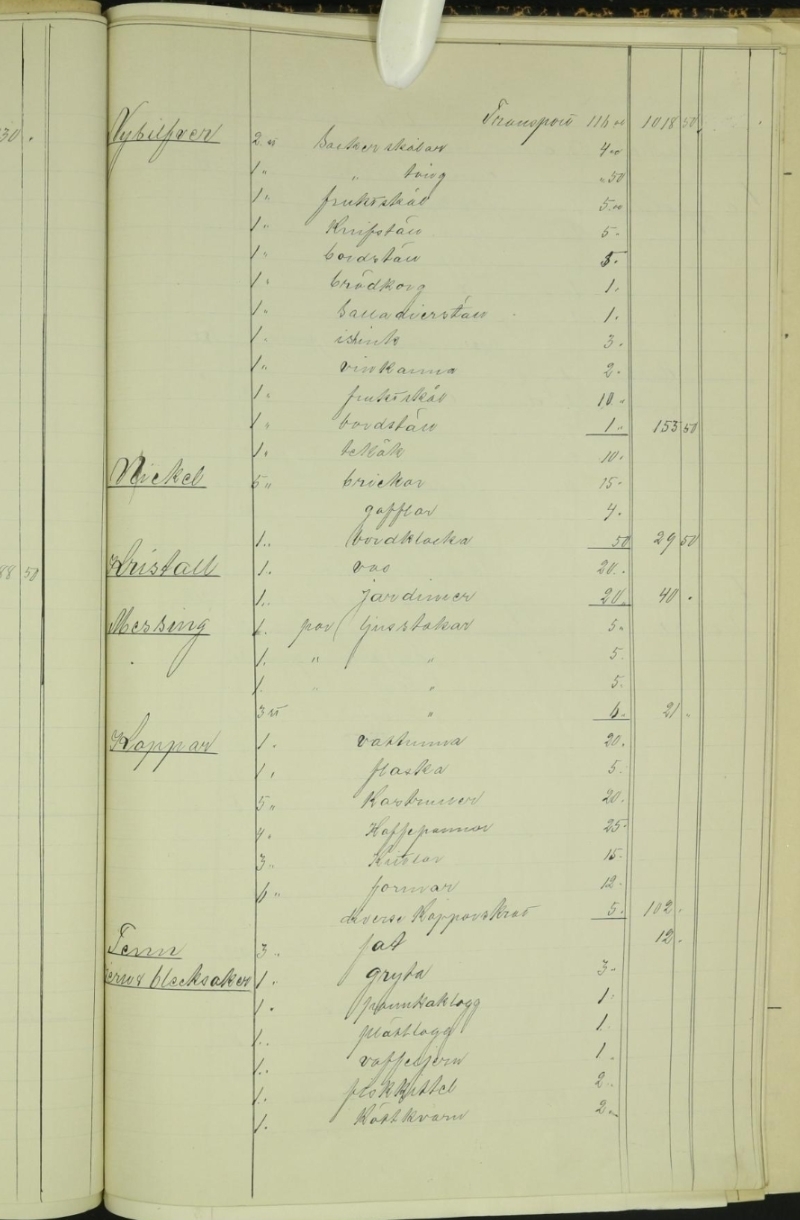 30 .
88 50
Transport 116 00 1018 50
Nysilfver 2 st Sockerskålar 4 00
1 " " tång " 50
1 " fruktskål 5 00
1 " Knifställ 5 "
1 " bordställ 5 "
1 " brödkorg 1 "
1 " Salladierställ 1 "
1 " ishink 3 "
1 " vinkanna 2 "
1 " fruktskål 10 "
1 " bordställ 1 " 153 50
1 " 10 "
Nickel 5 " brickor 15 "
gafflar 4 "
1 " bordklocka 50 29 50
Kristall 1 " vas 20 "
1 " jardinier 20 " 40 "
Messing 1 " par ljusstakar 5 "
1 " " " 5 "
1 " " " 5 "
3 st " 6 " 21 "
Koppar 1 " 20 "
1 " flaska 5 "
5 " Kastruller 20 "
4 " Kaffepannor 25 "
3 " Kittlar 15 "
6 " formar 12 "
diverse Kopparskrot 5 " 102 "
Tenn 3 " fat 12 "
Jern & blecksaker 1 " gryta 3 "
1 " pannkaklagg 1 "
1 " plättlagg 1
1 " vaffeljern 1 "
1 " fiskkittel 2 "
1 " Köttkvarn 2 "